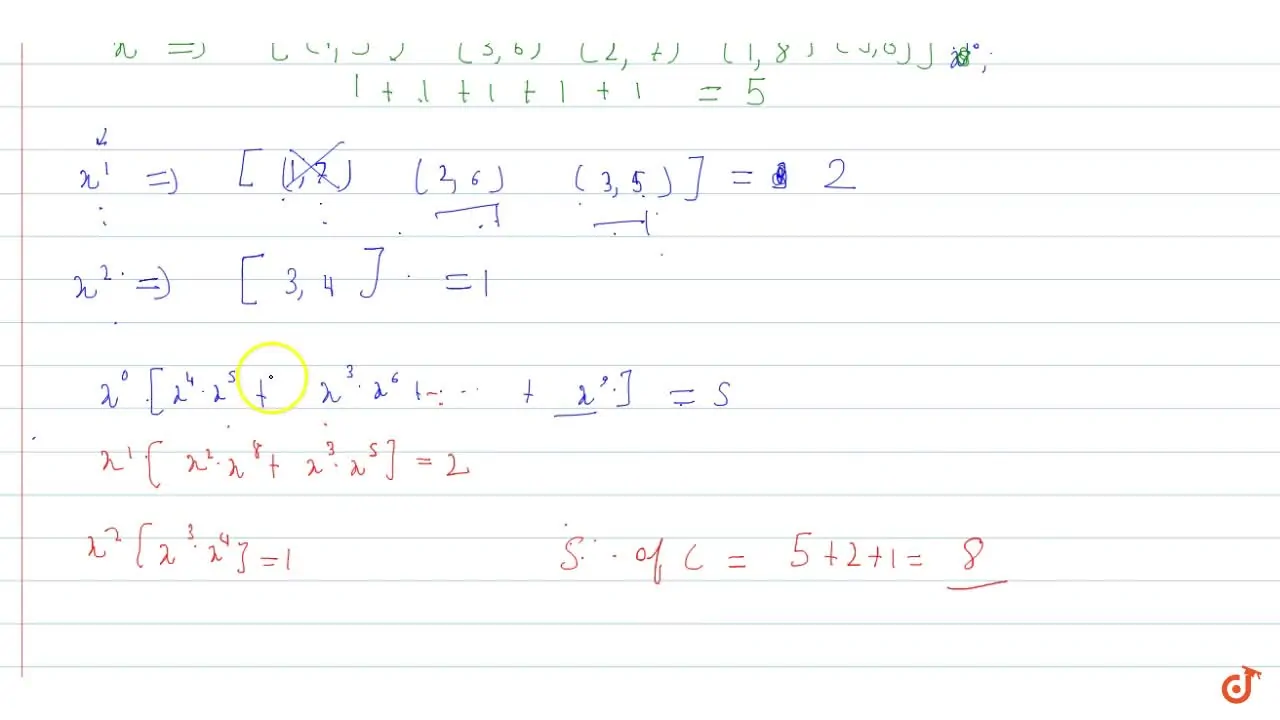 x => [ (4,5) (3,6) (2,7) (1,8) (9,0) ] x⁰;
1 + 1 + 1 + 1 + 1 = 5
x¹ => [ (1,7) (2,6) (3,5) ] = 2
x² => [ 3, 4 ] = 1
x⁰ [ x⁴·x⁵ + x³·x⁶ + ... + x⁹ ] = 5
x¹ [ x²·x⁸ + x³·x⁵ ] = 2
x² [ x³·x⁴ ] = 1
S... of C = 5+2+1 = 8